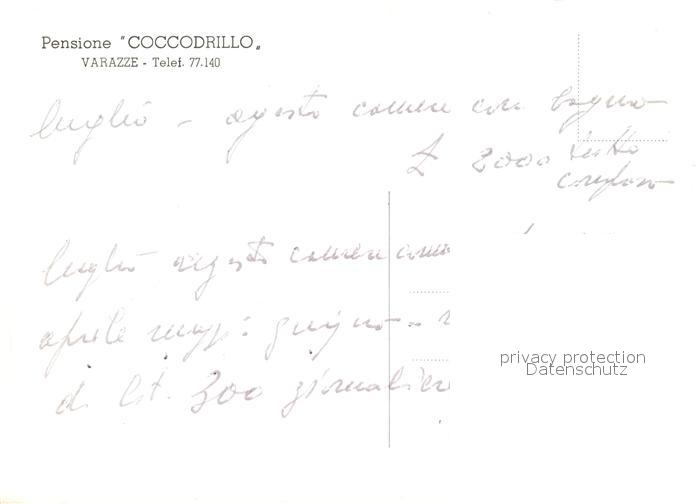 Pensione "COCCODRILLO"
VARAZZE - Telef. 77.140
luglio - agosto camere con bagno
£ 2000 tutto
compreso
luglio agosto camere
aprile magg: giugno -
di Lit. 300 giornaliere
privacy protection
Datenschutz